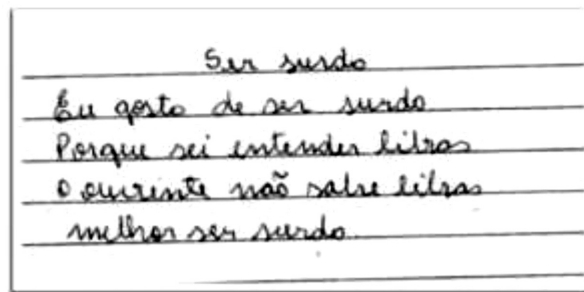 Ser surdo
Eu gosto de ser surdo
Porque sei entender libras
O ouvinte não sabe libras
melhor ser surdo.